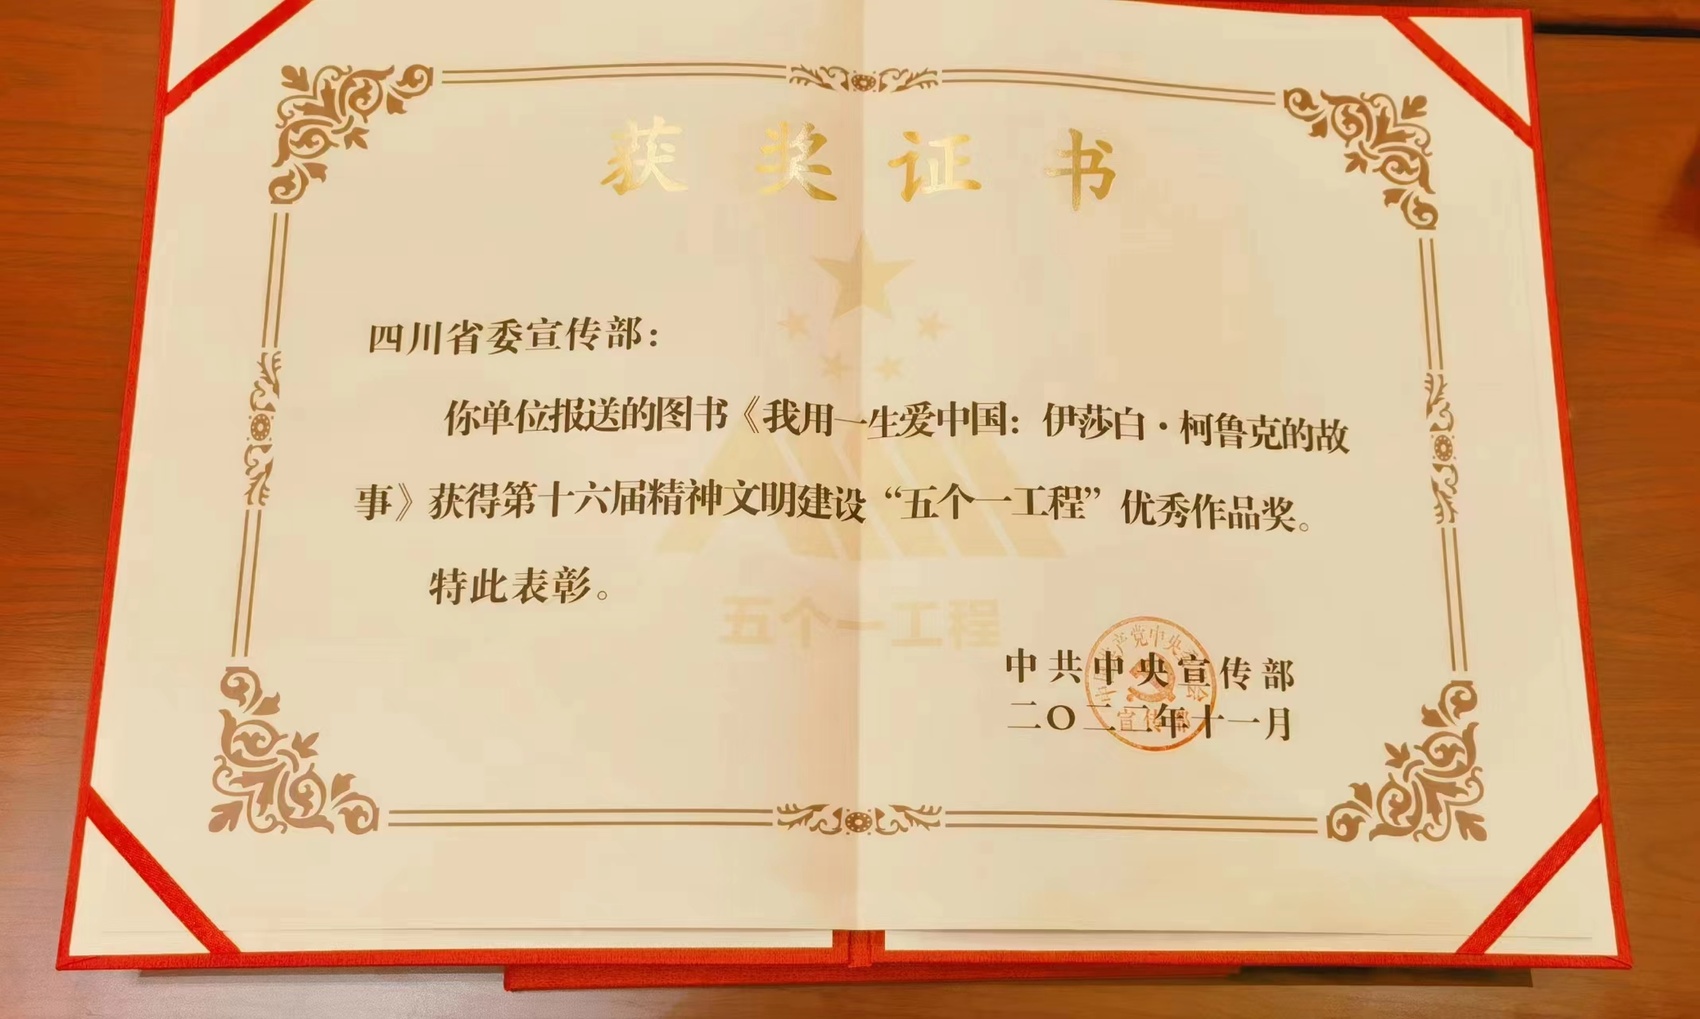 获奖证书
四川省委宣传部：
你单位报送的图书《我用一生爱中国：伊莎白·柯鲁克的故
事》获得第十六届精神文明建设“五个一工程”优秀作品奖。
特此表彰。
五个一工程
中共中央宣传部
二〇二二年十一月